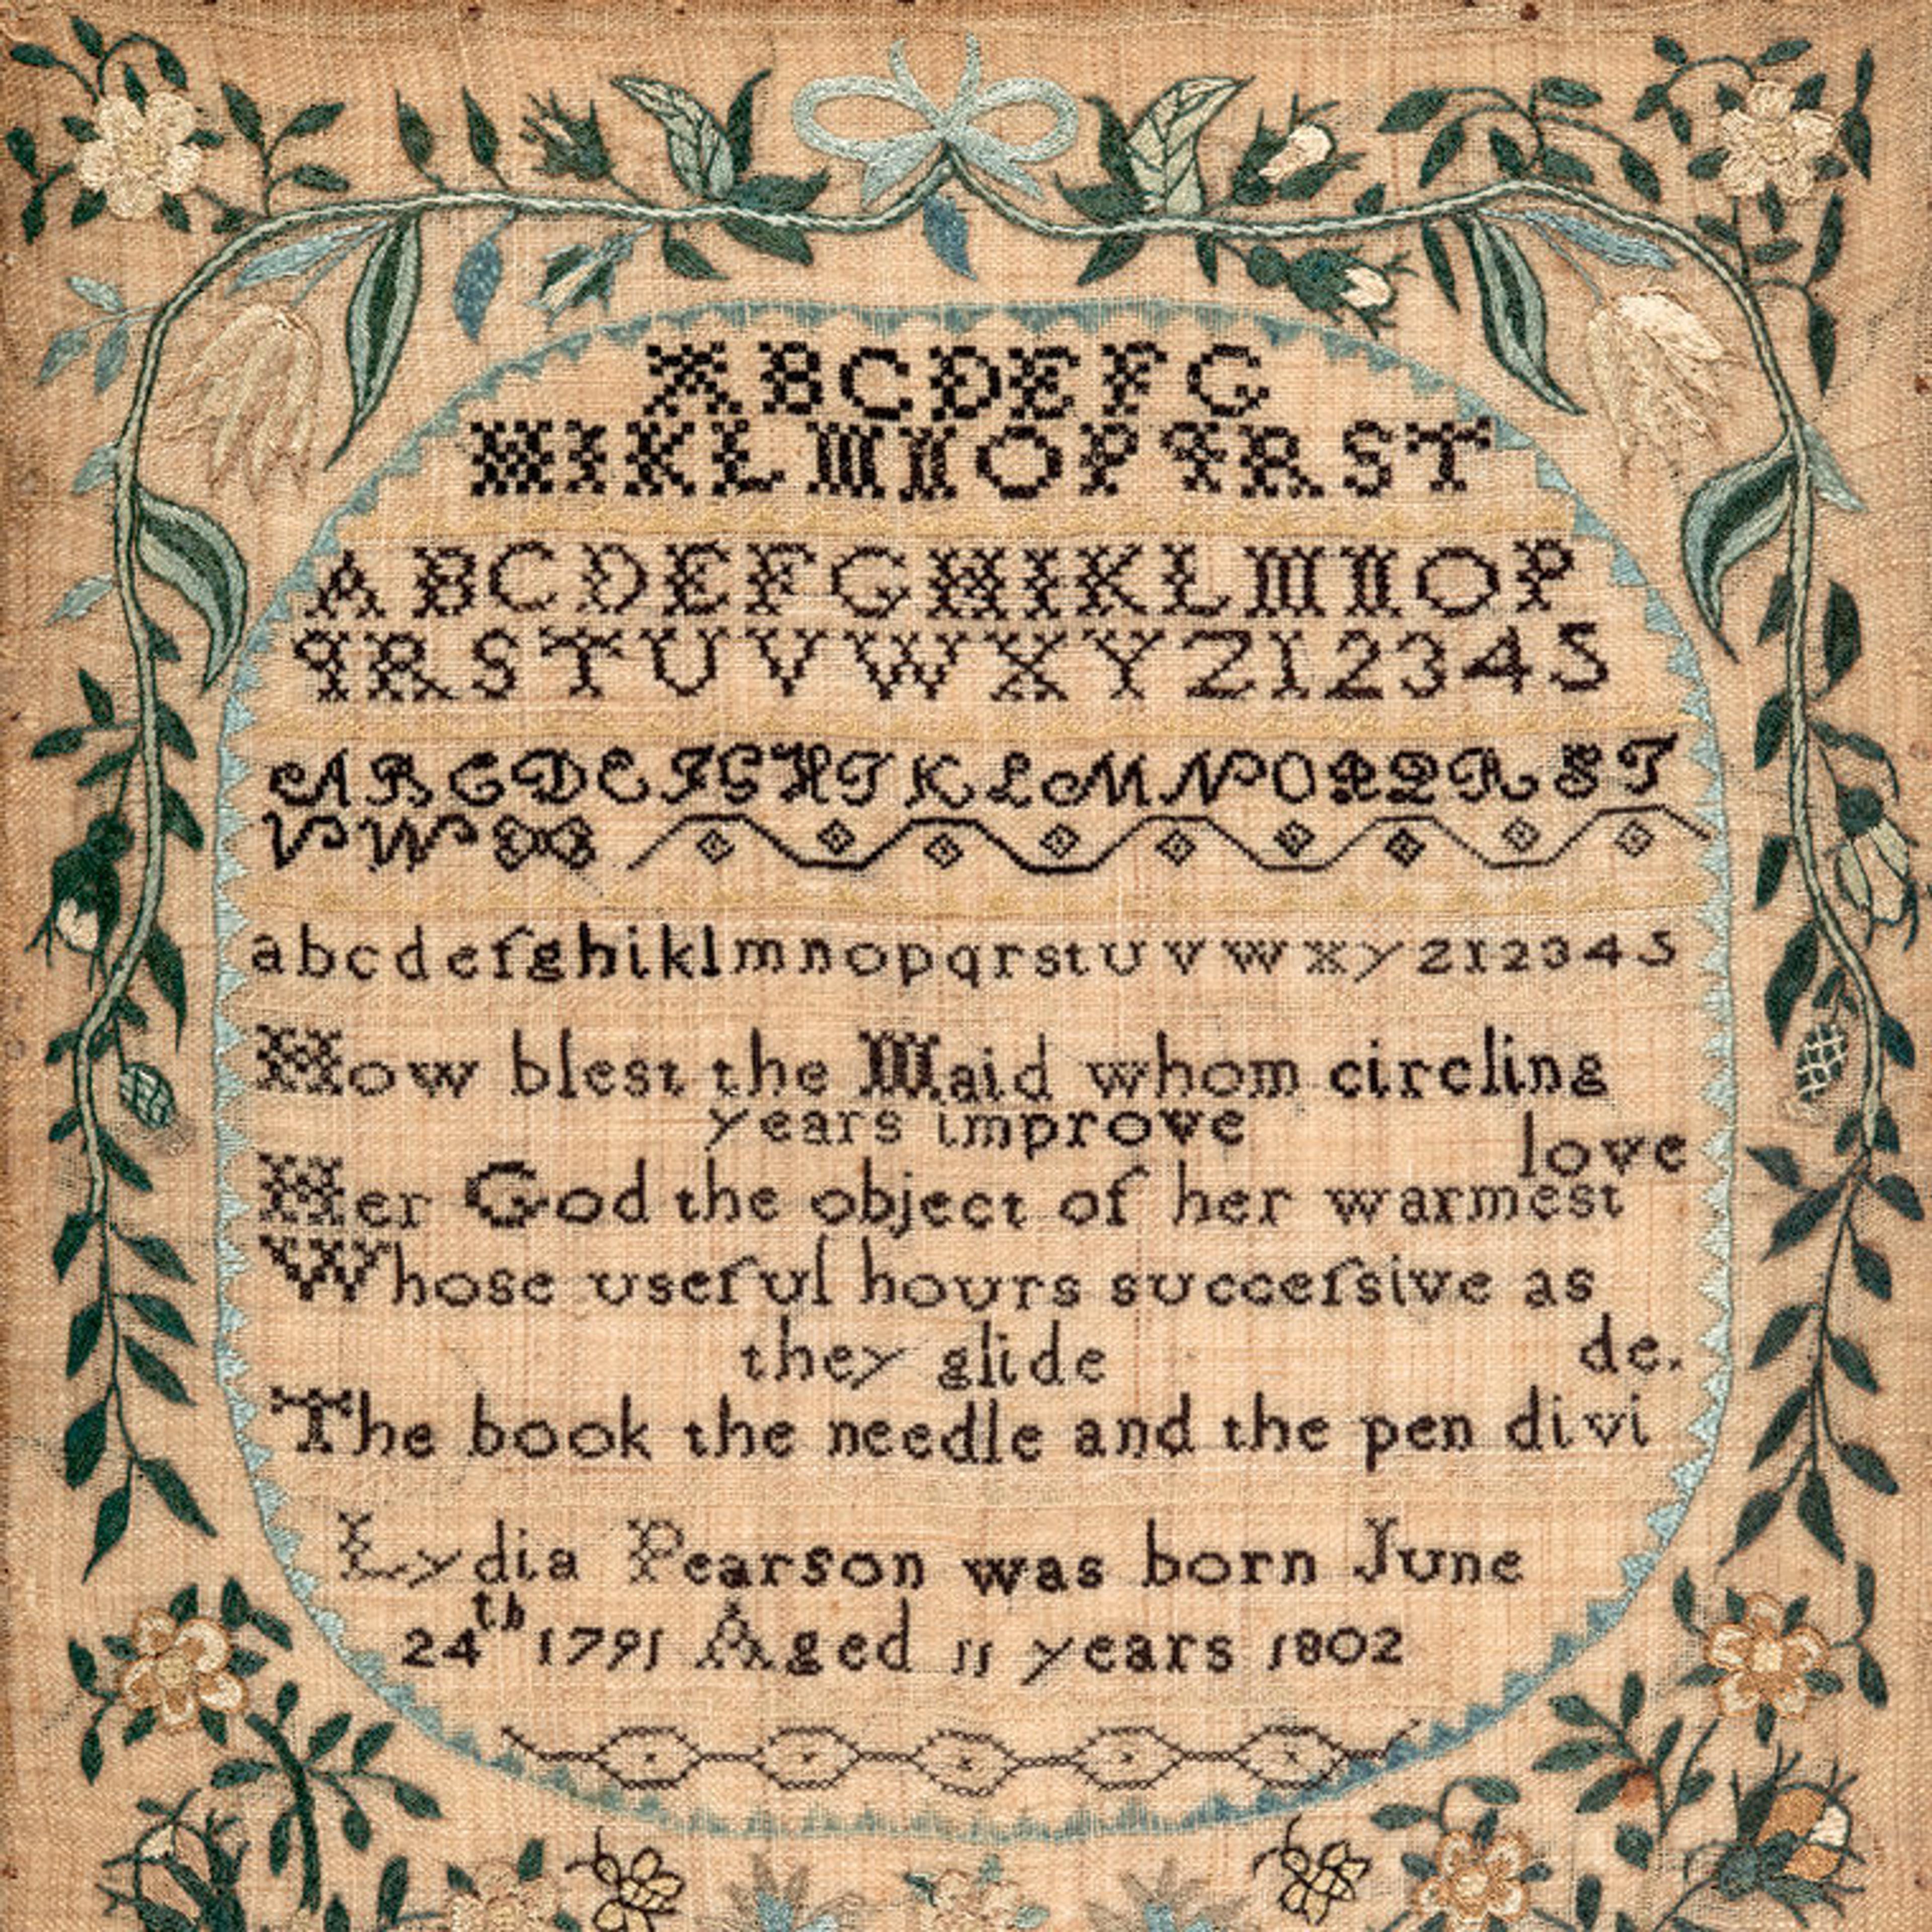 ABCDEFG
HIKLMNOPQRST
ABCDEFGHIKLMNOP
QRSTUVWXYZ12345
ABCDEFGHIKLMNOPQRST
VW
abcdefghiklmnopqrstuvwxyz12345
How blest the Maid whom circling
years improve
love
Her God the object of her warmest
Whose useful hours succeſsive as
they glide
de.
The book the needle and the pen divi
Lydia Pearson was born June
24th 1791 Aged 11 years 1802